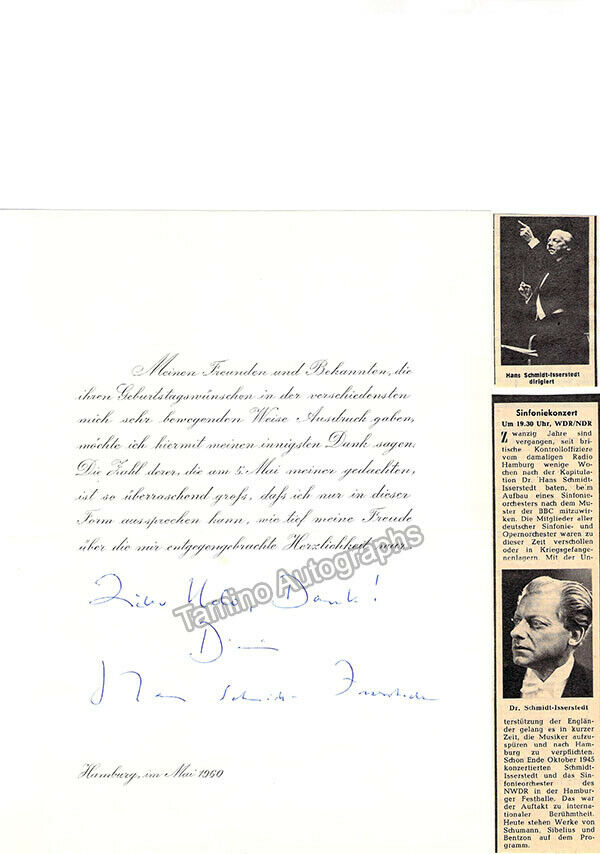 Meinen Freunden und Bekannten, die
ihren Geburtstagswünschen in der verschiedensten
mich sehr bewegenden Weise Ausdruck gaben,
möchte ich hiermit meinen innigsten Dank sagen.
Die Zahl derer, die am 5. Mai meiner gedachten,
ist so überraschend groß, daß ich nur in dieser
Form aussprechen kann, wie tief meine Freude
über die mir entgegengebrachte Herzlichkeit war.
Dank!
Hans Schmidt-Isserstedt
Hamburg, im Mai 1960
Tamino Autographs
Hans Schmidt-Isserstedt
dirigiert
Sinfoniekonzert
Um 19.30 Uhr, WDR/NDR
Zwanzig Jahre sind
vergangen, seit bri-
tische Kontrolloffiziere
vom damaligen Radio
Hamburg wenige Wo-
chen nach der Kapitula-
tion Dr. Hans Schmidt-
Isserstedt baten, beim
Aufbau eines Sinfonie-
orchesters nach dem Mu-
ster der BBC mitzuwir-
ken. Die Mitglieder aller
deutscher Sinfonie- und
Opernorchester waren zu
dieser Zeit verschollen
oder in Kriegsgefange-
nenlagern. Mit der Un-
Dr. Schmidt-Isserstedt
terstützung der Englän-
der gelang es in kurzer
Zeit, die Musiker aufzu-
spüren und nach Ham-
burg zu verpflichten.
Schon Ende Oktober 1945
konzertierten Schmidt-
Isserstedt und das Sin-
fonieorchester des
NWDR in der Hambur-
ger Festhalle. Das war
der Auftakt zu interna-
tionaler Berühmtheit.
Heute stehen Werke von
Schumann, Sibelius und
Bentzon auf dem Pro-
gramm.